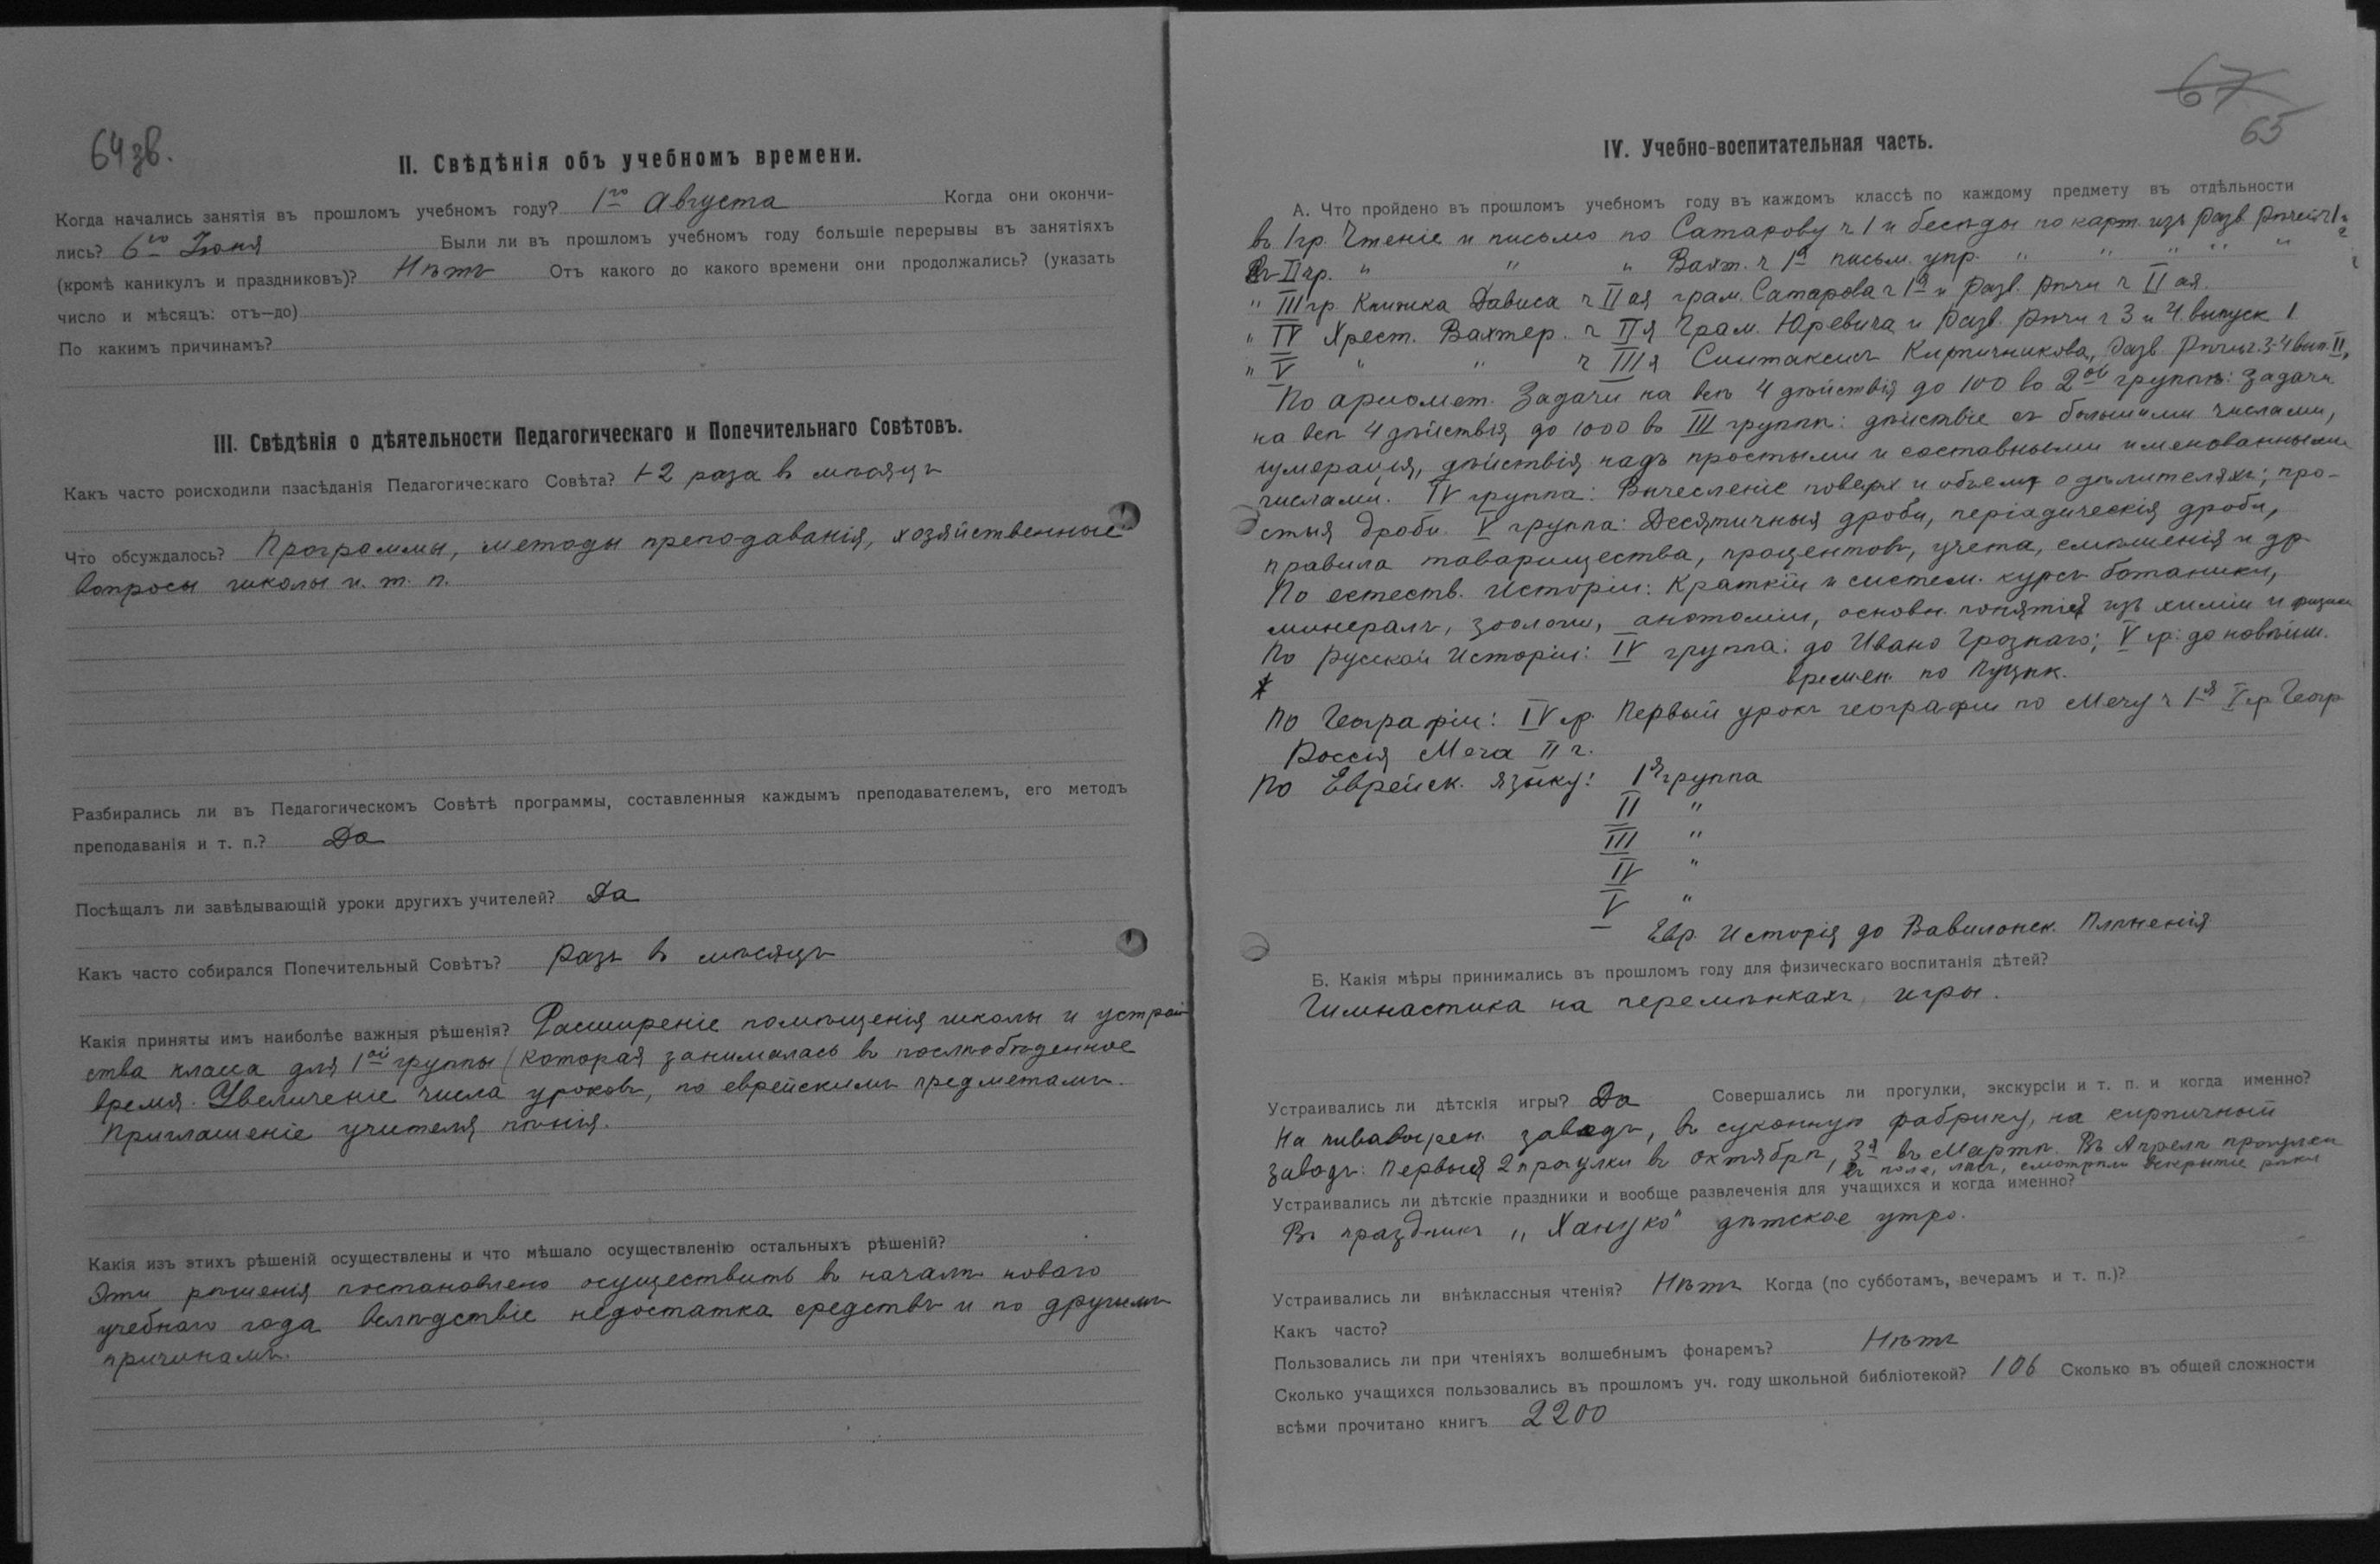 64 зв.
II. Свѣдѣнія объ учебномъ времени.
Когда начались занятія въ прошломъ учебномъ году? 1го Августа Когда они окончи-
лись? 6го Іюня Были ли въ прошломъ учебномъ году большіе перерывы въ занятіяхъ
(кромѣ каникулъ и праздниковъ)? Нѣтъ Отъ какого до какого времени они продолжались? (указать
число и мѣсяцъ: отъ—до)
По какимъ причинамъ?
III. Свѣдѣнія о дѣятельности Педагогическаго и Попечительнаго Совѣтовъ.
Какъ часто роисходили пзасѣданія Педагогическаго Совѣта? 1-2 раза въ мѣсяцъ
Что обсуждалось? Программы, методы преподаванія, хозяйственные
вопросы школы и. т. п.
Разбирались ли въ Педагогическомъ Совѣтѣ программы, составленныя каждымъ преподавателемъ, его методъ
преподаванія и т. п.? Да
Посѣщалъ ли завѣдывающій уроки другихъ учителей? Да
Какъ часто собирался Попечительный Совѣтъ? Разъ въ мѣсяцъ
Какія приняты имъ наиболѣе важныя рѣшенія? Расширеніе помѣщенія школы и устрой
ства класса для 1ой группы (которая занималась въ послѣобѣденное
время. Увеличеніе числа уроковъ, по еврейскимъ предметамъ.
Приглашеніе учителя пѣнія.
Какія изъ этихъ рѣшеній осуществлены и что мѣшало осуществленію остальныхъ рѣшеній?
Эти рѣшенія постановлено осуществить въ началѣ новаго
учебнаго года вслѣдствіе недостатка средствъ и по другимъ
причинамъ.
67
65
IV. Учебно-воспитательная часть.
А. Что пройдено въ прошломъ учебномъ году въ каждомъ классѣ по каждому предмету въ отдѣльности
въ I гр. Чтеніе и письмо по Сатарову ч 1 и бесѣды по карт. изъ разв. рѣчи ч 1
Въ II гр. " " " Вахт. ч 1я письм. упр. " " " "
" III гр. Книжка Дависа ч II ая грам. Сатарова ч 1я и разв. рѣчи ч II ая.
" IV Хрест. Вахтер. ч II я Грам. Юревича и разв. рѣчи ч 3 и 4 выпуск 1
" V " " ч III я Синтаксисъ Кирпичникова, разв. рѣчи ч. 3-4 вып. II,
По ариѳмет. Задачи на всѣ 4 дѣйствія до 100 во 2ой группѣ: задачи
на всѣ 4 дѣйствія до 1000 въ III группѣ: дѣйствіе съ большими числами,
нумерація, дѣйствія надъ простыми и составными именованными
числами. IV группа: Вычесленіе поверх и объемъ о дѣлителяхъ; про-
стыя дроби. V группа: Десятичныя дроби, періадическія дроби,
правила товарищества, процентовъ, учета, смѣшенія и др
По естеств. исторіи: Краткій и систем. курсъ ботаники,
минералъ, зоологи, анотоміи, основн. понятія изъ химіи и физики
По Русской Исторіи: IV группа: до Ивана Грознаго; V гр: до новѣйш.
времен. по Пуцык.
По Географіи: IV гр. Первый урокъ географіи по Мечу ч 1я V гр Геогр
Россія Меча II ч.
По Еврейск. языку: 1я группа
II "
III "
IV "
V "
Евр. исторія до Вавилонск. плѣненія
Б. Какія мѣры принимались въ прошломъ году для физическаго воспитанія дѣтей?
Гимнастика на перемѣнкахъ, игры.
Устраивались ли дѣтскія игры? Да Совершались ли прогулки, экскурсіи и т. п. и когда именно?
На пивоварен. заводъ, въ суконную фабрику, на кирпичный
заводъ: Первыя 2 прогулки въ Октябрѣ, 3я въ Мартѣ. Въ Апрелѣ прогулки
въ поле, лѣсъ, смотрѣли вскрытіе рѣки
Устраивались ли дѣтскіе праздники и вообще развлеченія для учащихся и когда именно?
Въ праздникъ „Хануко" дѣтское утро.
Устраивались ли внѣклассныя чтенія? Нѣтъ Когда (по субботамъ, вечерамъ и т. п.)?
Какъ часто?
Пользовались ли при чтеніяхъ волшебнымъ фонаремъ? Нѣтъ
Сколько учащихся пользовались въ прошломъ уч. году школьной библіотекой? 106 Сколько въ общей сложности
всѣми прочитано книгъ 2200